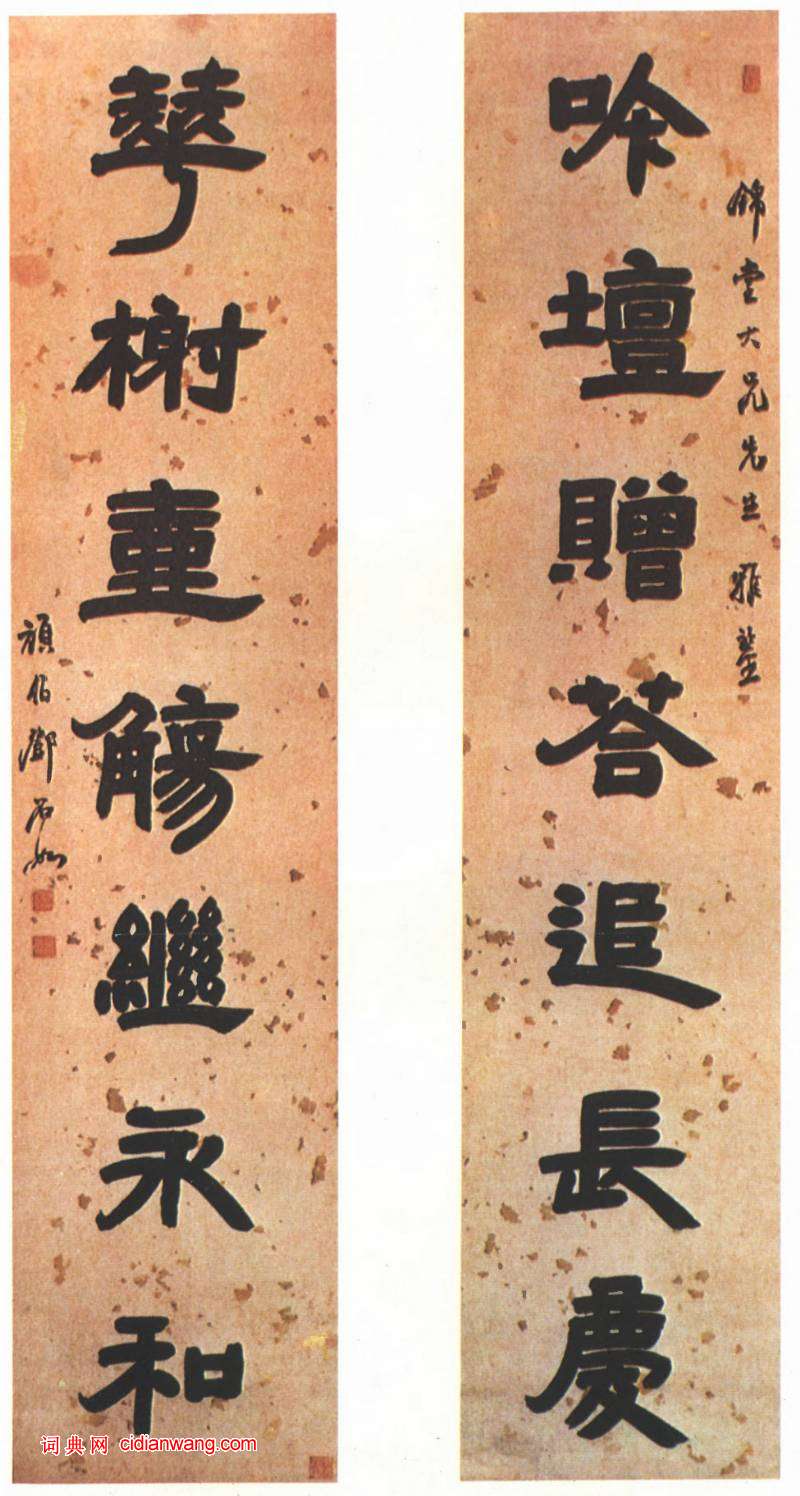 錦堂大兄先生雅鑒
吟壇贈荅追長慶
華榭壺觴繼永和
頑伯鄧石如
词典网 cidianwang.com